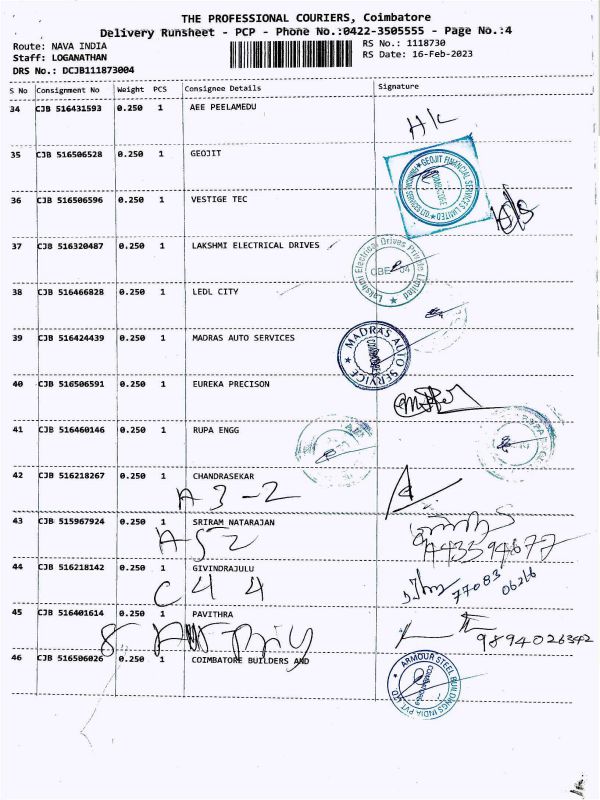 THE PROFESSIONAL COURIERS, Coimbatore
Delivery Runsheet - PCP - Phone No.:0422-3505555 - Page No.:4
Route: NAVA INDIA
RS No.: 1118730
Staff: LOGANATHAN
RS Date: 16-Feb-2023
DRS No.: DCJB111873004
S No Consignment No Weight PCS Consignee Details Signature
34 CJB 516431593 0.250 1 AEE PEELAMEDU
35 CJB 516506528 0.250 1 GEOJIT
GEOJIT FINANCIAL SERVICES LIMITED
COIMBATORE
36 CJB 516506596 0.250 1 VESTIGE TEC
37 CJB 516320487 0.250 1 LAKSHMI ELECTRICAL DRIVES
Lakshmi Electrical Drives Private Limited
38 CJB 516466828 0.250 1 LEDL CITY
39 CJB 516424439 0.250 1 MADRAS AUTO SERVICES
MADRAS AUTO SERVICE
40 CJB 516506591 0.250 1 EUREKA PRECISON
41 CJB 516460146 0.250 1 RUPA ENGG
42 CJB 516218267 0.250 1 CHANDRASEKAR
A 3-2
43 CJB 515967924 0.250 1 SRIRAM NATARAJAN
A52
44 CJB 516218142 0.250 1 GIVINDRAJULU
C 44
77083
06266
45 CJB 516401614 0.250 1 PAVITHRA
9894026342
46 CJB 516506026 0.250 1 COIMBATORE BUILDERS AND
ARMOUR STEEL BUILDINGS INDIA PVT LTD